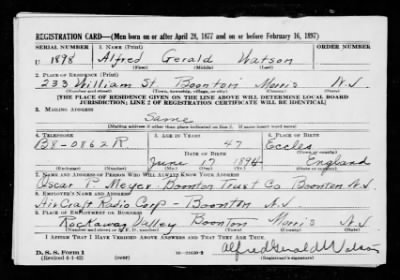 REGISTRATION CARD—(Men born on or after April 28, 1877 and on or before February 16, 1897)
SERIAL NUMBER 1. NAME (Print)
U 1898 Alfred Gerald Watson
(First) (Middle) (Last)
2. PLACE OF RESIDENCE (Print)
233 William St. Boonton Morris N.J.
(Number and street) (Town, township, village, or city) (County) (State)
[THE PLACE OF RESIDENCE GIVEN ON THE LINE ABOVE WILL DETERMINE LOCAL BOARD
JURISDICTION; LINE 2 OF REGISTRATION CERTIFICATE WILL BE IDENTICAL]
3. MAILING ADDRESS
Same
[Mailing address if other than place indicated on line 2. If same insert word same]
4. TELEPHONE 5. AGE IN YEARS 6. PLACE OF BIRTH
B8-0862R 47 Eccles
DATE OF BIRTH (Town or county)
June 17 1894 England
(Mo.) (Day) (Yr.) (State or country)
7. NAME AND ADDRESS OF PERSON WHO WILL ALWAYS KNOW YOUR ADDRESS
Oscar P. Meyer Boonton Trust Co Boonton N.J.
8. EMPLOYER'S NAME AND ADDRESS
AirCraft Radio Corp - Boonton N.J.
9. PLACE OF EMPLOYMENT OR BUSINESS
Rockaway Valley Boonton Morris N.J.
(Number and street or R. F. D. number) (Town) (County) (State)
I AFFIRM THAT I HAVE VERIFIED ABOVE ANSWERS AND THAT THEY ARE TRUE.
D. S. S. Form 1
(Revised 4-1-42) Alfred Gerald Watson
(Registrant's signature)